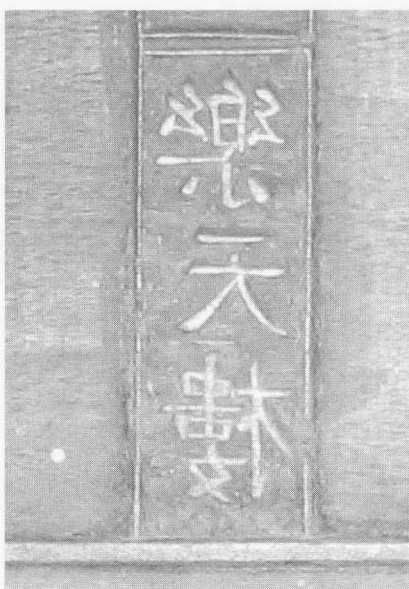 樂天樓